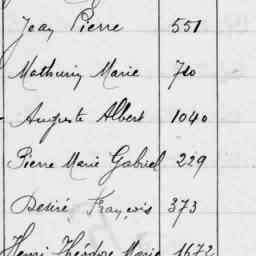 Jean Pierre 551
Mathurin Marie 740
Auguste Albert 1040
Pierre Marie Gabriel 229
Desiré François 373
Henri Théodore Marie 1672